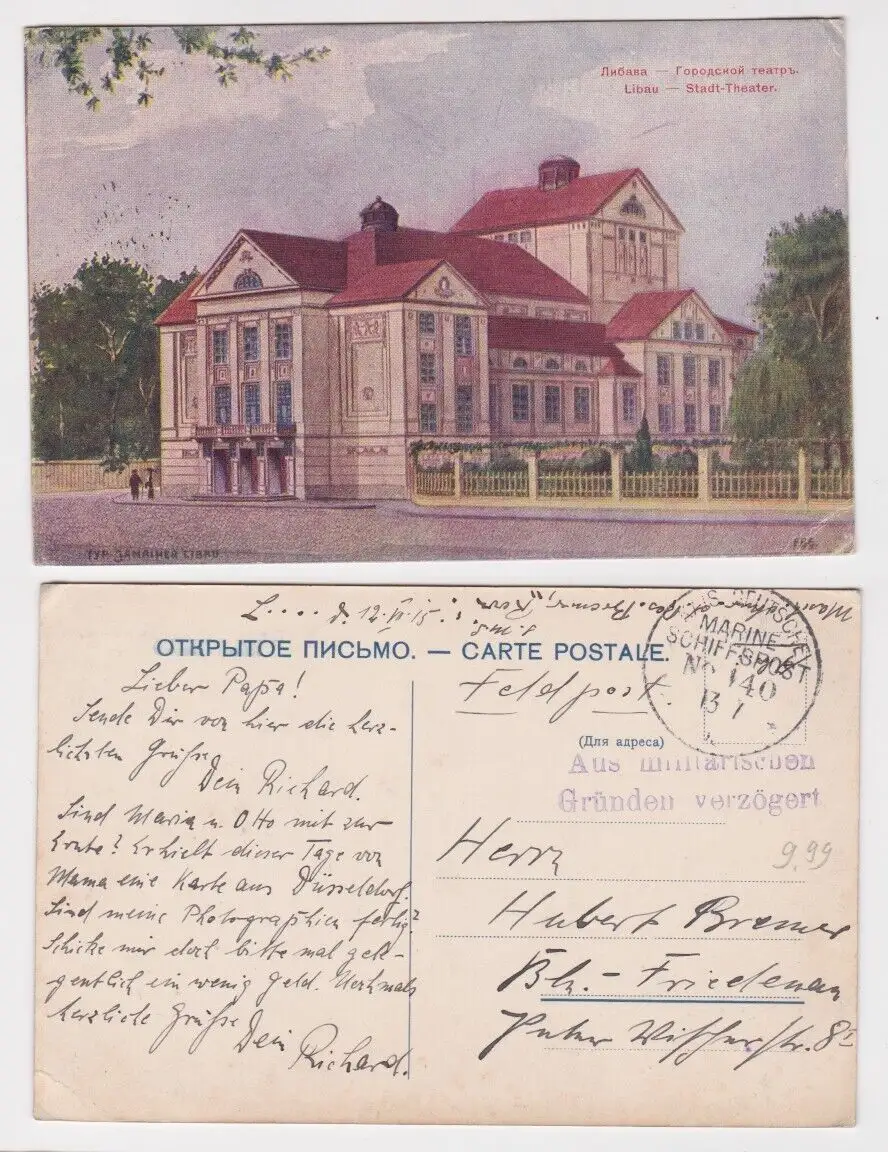 Либава — Городской театръ.
Libau — Stadt-Theater.
ТУР. ZAMAIHER LIBAU
L.... d. 12.VI.15.
S.M.S.
ОТКРЫТОЕ ПИСЬМО. — CARTE POSTALE.
Lieber Papa!
Sende Dir von hier die herz-
lichsten Grüße
Dein Richard.
Sind Maria u. Otto mit zur
Ernte? Erhielt dieser Tage von
Mama eine Karte aus Düsseldorf.
Sind meine Photographien fertig?
Schicke mir doch bitte mal gele-
gentlich ein wenig Geld. Nochmals
herzliche Grüße
Dein
Richard.
Feldpost.
DEUTSCHE
MARINE-
SCHIFFSPOST
No 140
13 7
(Для адреса)
Aus militärischen
Gründen verzögert
9.99
Herrn
Hubert Bremer
Bln.- Friedenau
Peter Vischerstr. 8I